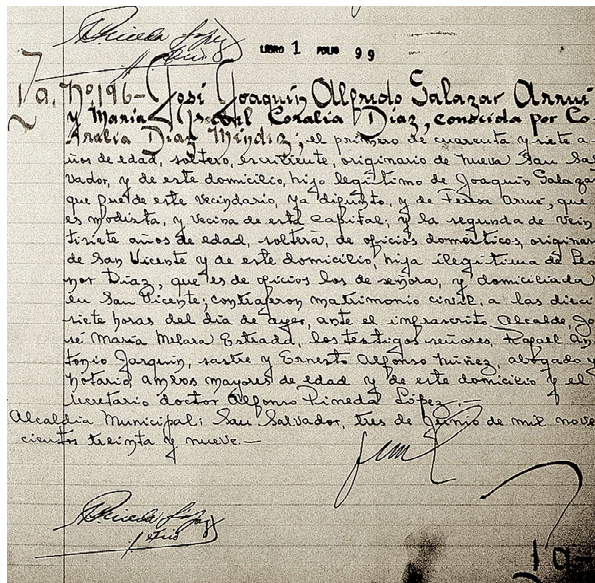 Pineda López
Srio
LIBRO 1 FOLIO 99
1a. Nº 196- José Joaquín Alfredo Salazar Arrué
y María Isabel Coralia Díaz, conocida por Co
ralia Díaz Méndez; el primero de cuarenta y siete a
ños de edad, soltero, escribiente, originario de nueva San Sal
vador, y de este domicilio, hijo legítimo de Joaquín Salazar
que fué de este vecindario, ya difunto, y de Teresa Arrué, que
es modista, y vecina de esta capital; y la segunda de vein
tisiete años de edad, soltera, de oficios domésticos, originar
de San Vicente y de este domicilio, hija ilegítima de Leo
nor Díaz, que es de oficios los de señora, y domiciliada
en San Vicente; contrajeron matrimonio civil, a las dieci
siete horas del día de ayer, ante el infrascrito Alcalde, Jo
sé María Melara Estrada, los testigos señores, Rafael An
tonio Jarquín, sastre y Ernesto Alfonso Núñez, abogado y
Notario, ambos mayores de edad y de este domicilio y el
secretario doctor Alfonso Pineda López.-
Alcaldía Municipal: San Salvador, tres de Junio de mil nove
cientos treinta y nueve.-
Pineda López
Srio
1a-